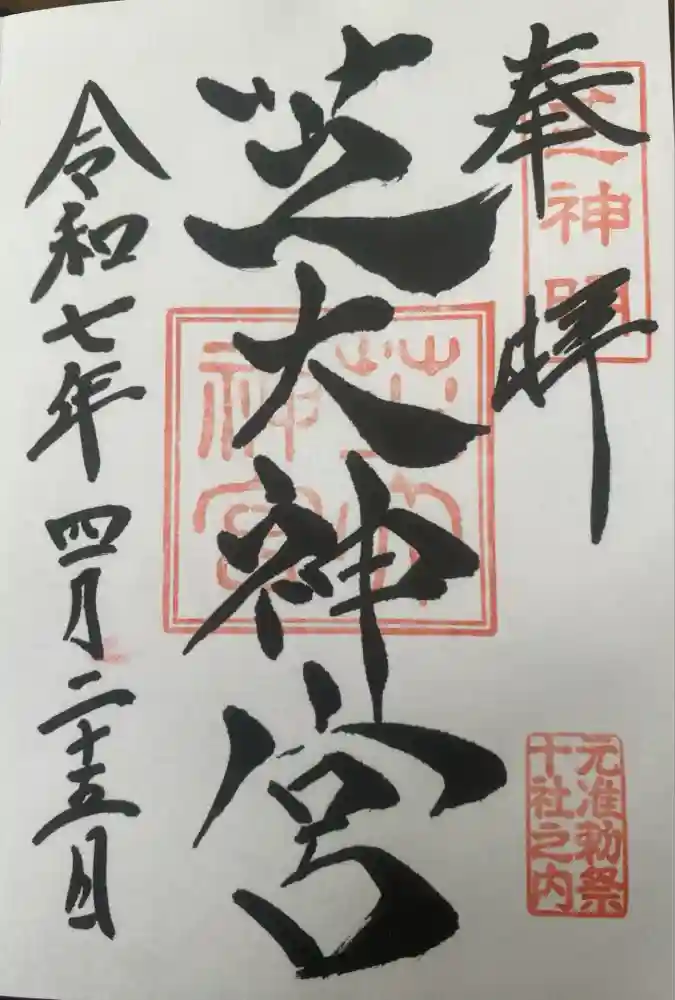 奉拝
芝神明
芝大神宮
芝大神宮
元准勅祭
十社之内
令和七年四月二十五日